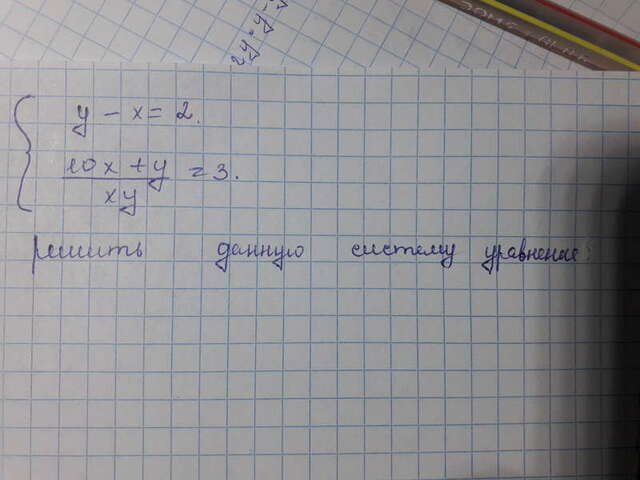 y - x = 2.
10x + y
xy
= 3.
решить данную систему уравнение.